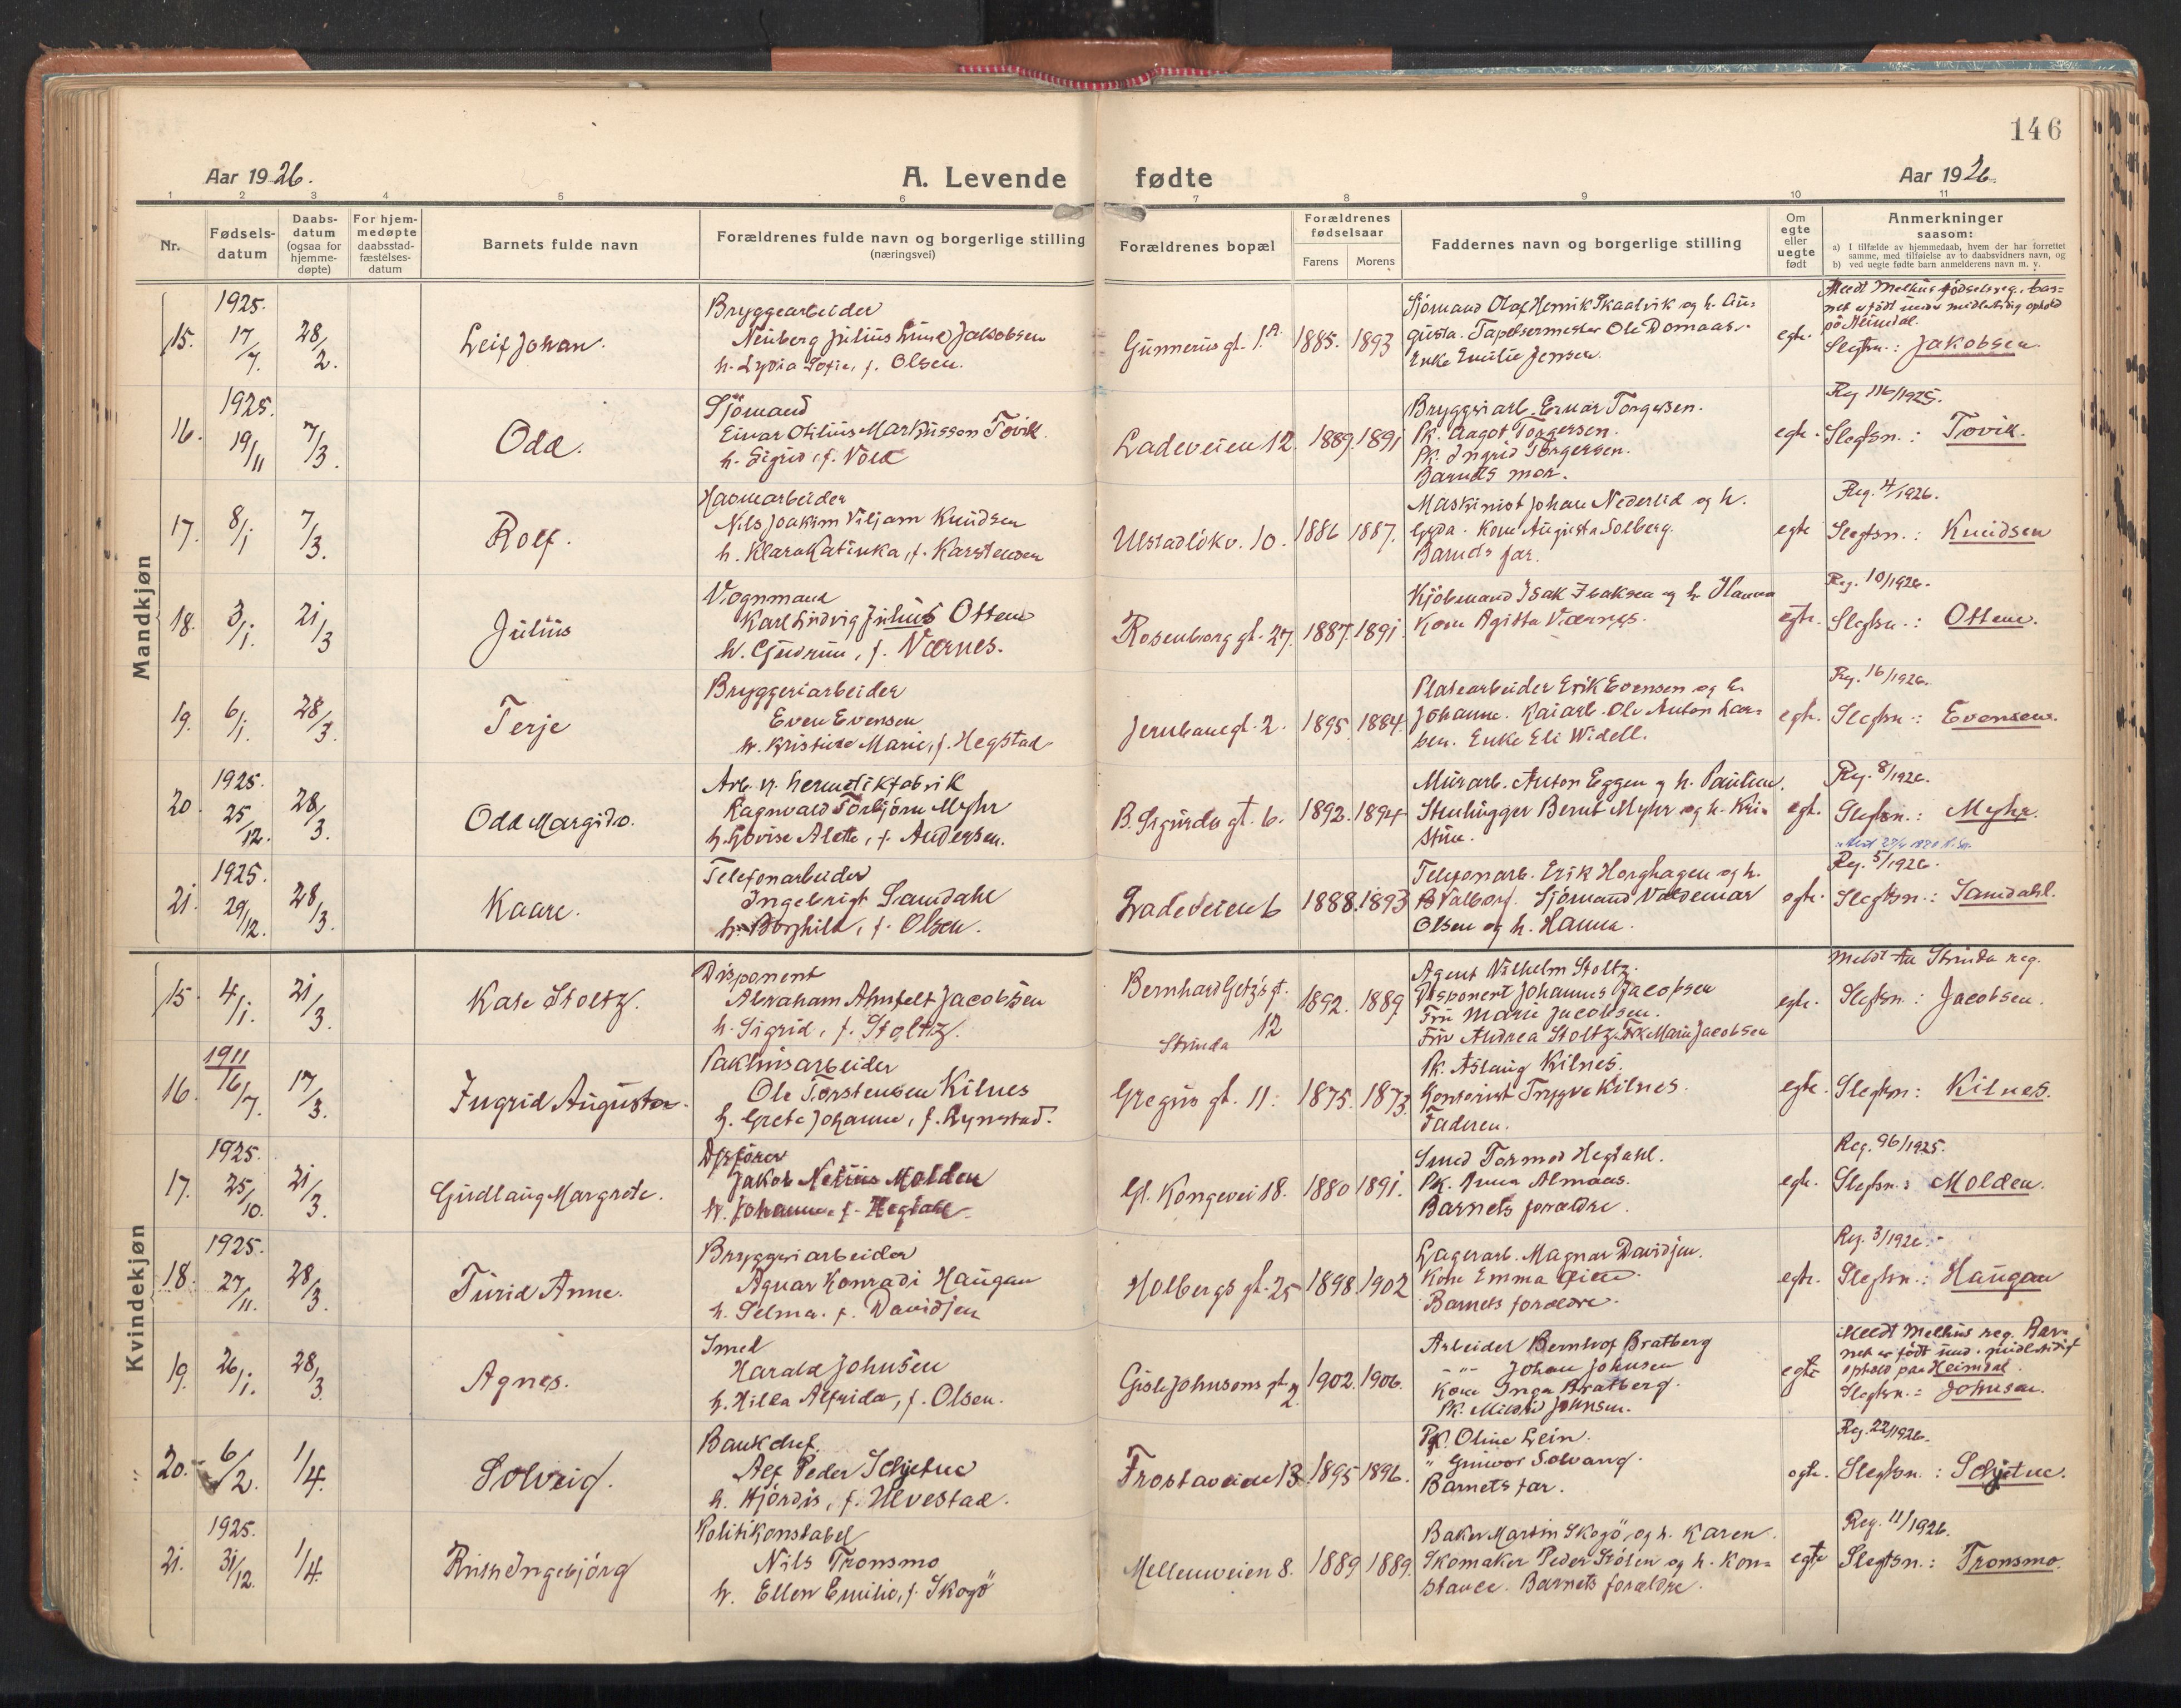 146
Aar 1926.
A. Levende fødte
Aar 1926.
1 2 3 4 5 6 7 8 9 10 11
Nr.
Fødsels-
datum
Daabs-
datum
(ogsaa for
hjemme-
døpte)
For hjem-
medøpte
daabsstad-
fæstelses-
datum
Barnets fulde navn
Forældrenes fulde navn og borgerlige stilling
(næringsvei)
Forældrenes bopæl
Forældrenes
fødselsaar
Farens Morens
Faddernes navn og borgerlige stilling
Om
egte
eller
uegte
født
Anmerkninger
saasom:
a) I tilfælde av hjemmedaab, hvem der har forrettet
samme, med tilføielse av to daabsvidners navn, og
b) ved uegte fødte barn anmelderens navn m. v.
Mandkjøn
15.
1925.
17/7.
28/2.
Leif Johan.
Bryggearbeider
Neuberg Julius Jakobsen
h. Lydia Sofie, f. Olsen.
Gunnerus gt. 1A.
1885. 1893
Sjömand Olaf Henrik Skaalvik og h. Au-
gusta. Tapetsermester Ole Domaas.
Enke Emilie Jensen.
egte.
Meldt Melhus födselsreg. bar-
net er födt under midlertidig ophold
på Heimdal.
Slegtsn.: Jakobsen.
16.
1925.
19/11
7/3.
Odd.
Sjömand
Einar Otilius Markusson Tovik.
h. Sigrid, f. Vold
Ladeveien 12.
1889. 1891
Bryggeriarb. Einar Torgersen.
Pk. Aagot Torgersen.
Pk. Ingrid Torgersen.
Barnets mor.
egte.
Reg 116/1925.
Slegtsn.: Tovik.
17.
8/1
7/3.
Rolf.
Havnearbeider
Nils Joakim Viljam Knudsen
h. Klara Katinka, f. Karstensen
Ulstadlökv. 10.
1886 1887.
Maskinist Johan Nederlid og h.
Gyda. Kone Augusta Solberg.
Barnets far.
egte
Reg. 4/1926.
Slegtsn.: Knudsen
18.
3/1.
21/3
Julius
Vognmand
Karl Ludvig Julius Ottem
h. Gudrun, f. Værnes.
Rosenborg gt. 27.
1887. 1891.
Kjöbmand Isak Isaksen og h. Hanna
Kone Agitta Værnes.
egte.
Reg. 10/1926.
Slegtsn.: Ottem.
19.
6/1.
28/3.
Terje
Bryggeriarbeider
Even Evensen
h. Kristine Marie, f. Hegstad
Jernbanegt. 2.
1895. 1884.
Platearbeider Erik Evensen og h.
Johanne. Kaiarb. Ole Anton Lar-
sen. Enke Eli Widell.
egte.
Reg. 16/1926.
Slegtsn.: Evensen.
20.
1925.
25/12.
28/3.
Odd Margido.
Arb. v. hermetikfabrik
Ragnvald Torbjörn Myhr
h. Lovise Alette, f. Andersen.
B. Sigurds gt. 6.
1892. 1894
Murarb. Anton Eggen og h. Pauline.
Stenhugger Bernt Myhr og h. Kri-
stine.
egte.
Reg. 8/1926.
Slegtsn.: Myhr.
21.
1925.
29/12.
28/3.
Kaare.
Telefonarbeider
Ingebrigt Samdahl
h. Borghild, f. Olsen.
Ladeveien 6
1888. 1893
Telefonarb. Erik Horghagen og h.
Valborg. Sjömand Valdemar
Olsen og h. Hanna.
egte.
Reg. 5/1926.
Slegtsn.: Samdahl.
Kvindekjøn
15.
4/1.
21/3.
Kate Stoltz.
Disponent
Abraham Ahnfelt Jacobsen
h. Sigrid, f. Stoltz.
Bernhard Getz's gt.
12
Strinda
1892. 1889
Agent Vilhelm Stoltz.
Disponent Johannes Jacobsen
Fru Marie Jacobsen.
Fru Andrea Stoltz. Frk. Marie Jacobsen
egte.
Meldt til Strinda reg.
Slegtsn.: Jacobsen.
16.
1911
16/7.
17/3.
Ingrid Augusta.
Pakhusarbeider
Ole Torstensen Kilnes
h. Grete Johanne, f. Rynstad.
Gregus gt. 11.
1875. 1873.
Pk. Aslaug Kilnes.
Kontorist Trygve Kilnes.
Faderen.
egte.
Slegtsn: Kilnes.
17.
1925.
25/10.
21/3.
Gudlaug Margrete.
Jakob Netius Molden
h. Johanne f. Hegdahl
Gl. Kongevei 18.
1880 1891.
Smed Tormod Hegdahl.
Pk. Anna Almaas.
Barnets forældre.
egte.
Reg. 96/1925.
Slegtsn.: Molden.
18.
1925.
27/11.
28/3.
Turid Anne.
Bryggeriarbeider
Agnar Konradi Haugan
h. Selma. f. Davidsen
Holbergs gt. 25
1898. 1902
Lagerarb. Magnar Davidsen.
Kone Emma
Barnets forældre.
egte.
Reg. 3/1926.
Slegtsn.: Haugan
19.
26/1.
28/3
Agnes.
Smed
Harald Johnsen
h. Hilda Alfrida, f. Olsen.
Gisle Johnsons gt. 2
1902. 1906.
Arbeider Bernhof Bratberg
-"- Johan Johnsen
Kone Inga Bratberg.
Pk. Mildrid Johnsen.
egte
Meldt Melhus reg. Bar-
net er födt und. midlertidig
ophold paa Heimdal.
Slegtsn.: Johnsen.
20.
6/2.
1/4.
Solveig.
Bankchef.
Alf Peder Schjetne
h. Hjördis, f. Ulvestad.
Frostaveien 13.
1895 1896.
Pk. Oline Lein.
" Gunvor Solvang.
Barnets far.
egte.
Reg. 22/1926.
Slegtsn.: Schjetne.
21.
1925.
31/12.
1/4.
Ruth Ingebjörg
Politikonstabel
Nils Tronsmo
h. Ellen Emilie, f. Skogö
Mellemveien 8.
1889 1889.
Baker Martin Skogö, og h. Karen.
Skomaker Peder Stölen og h. Kon-
stance. Barnets forældre.
egte
Reg. 11/1926.
Slegtsn.: Tronsmo.